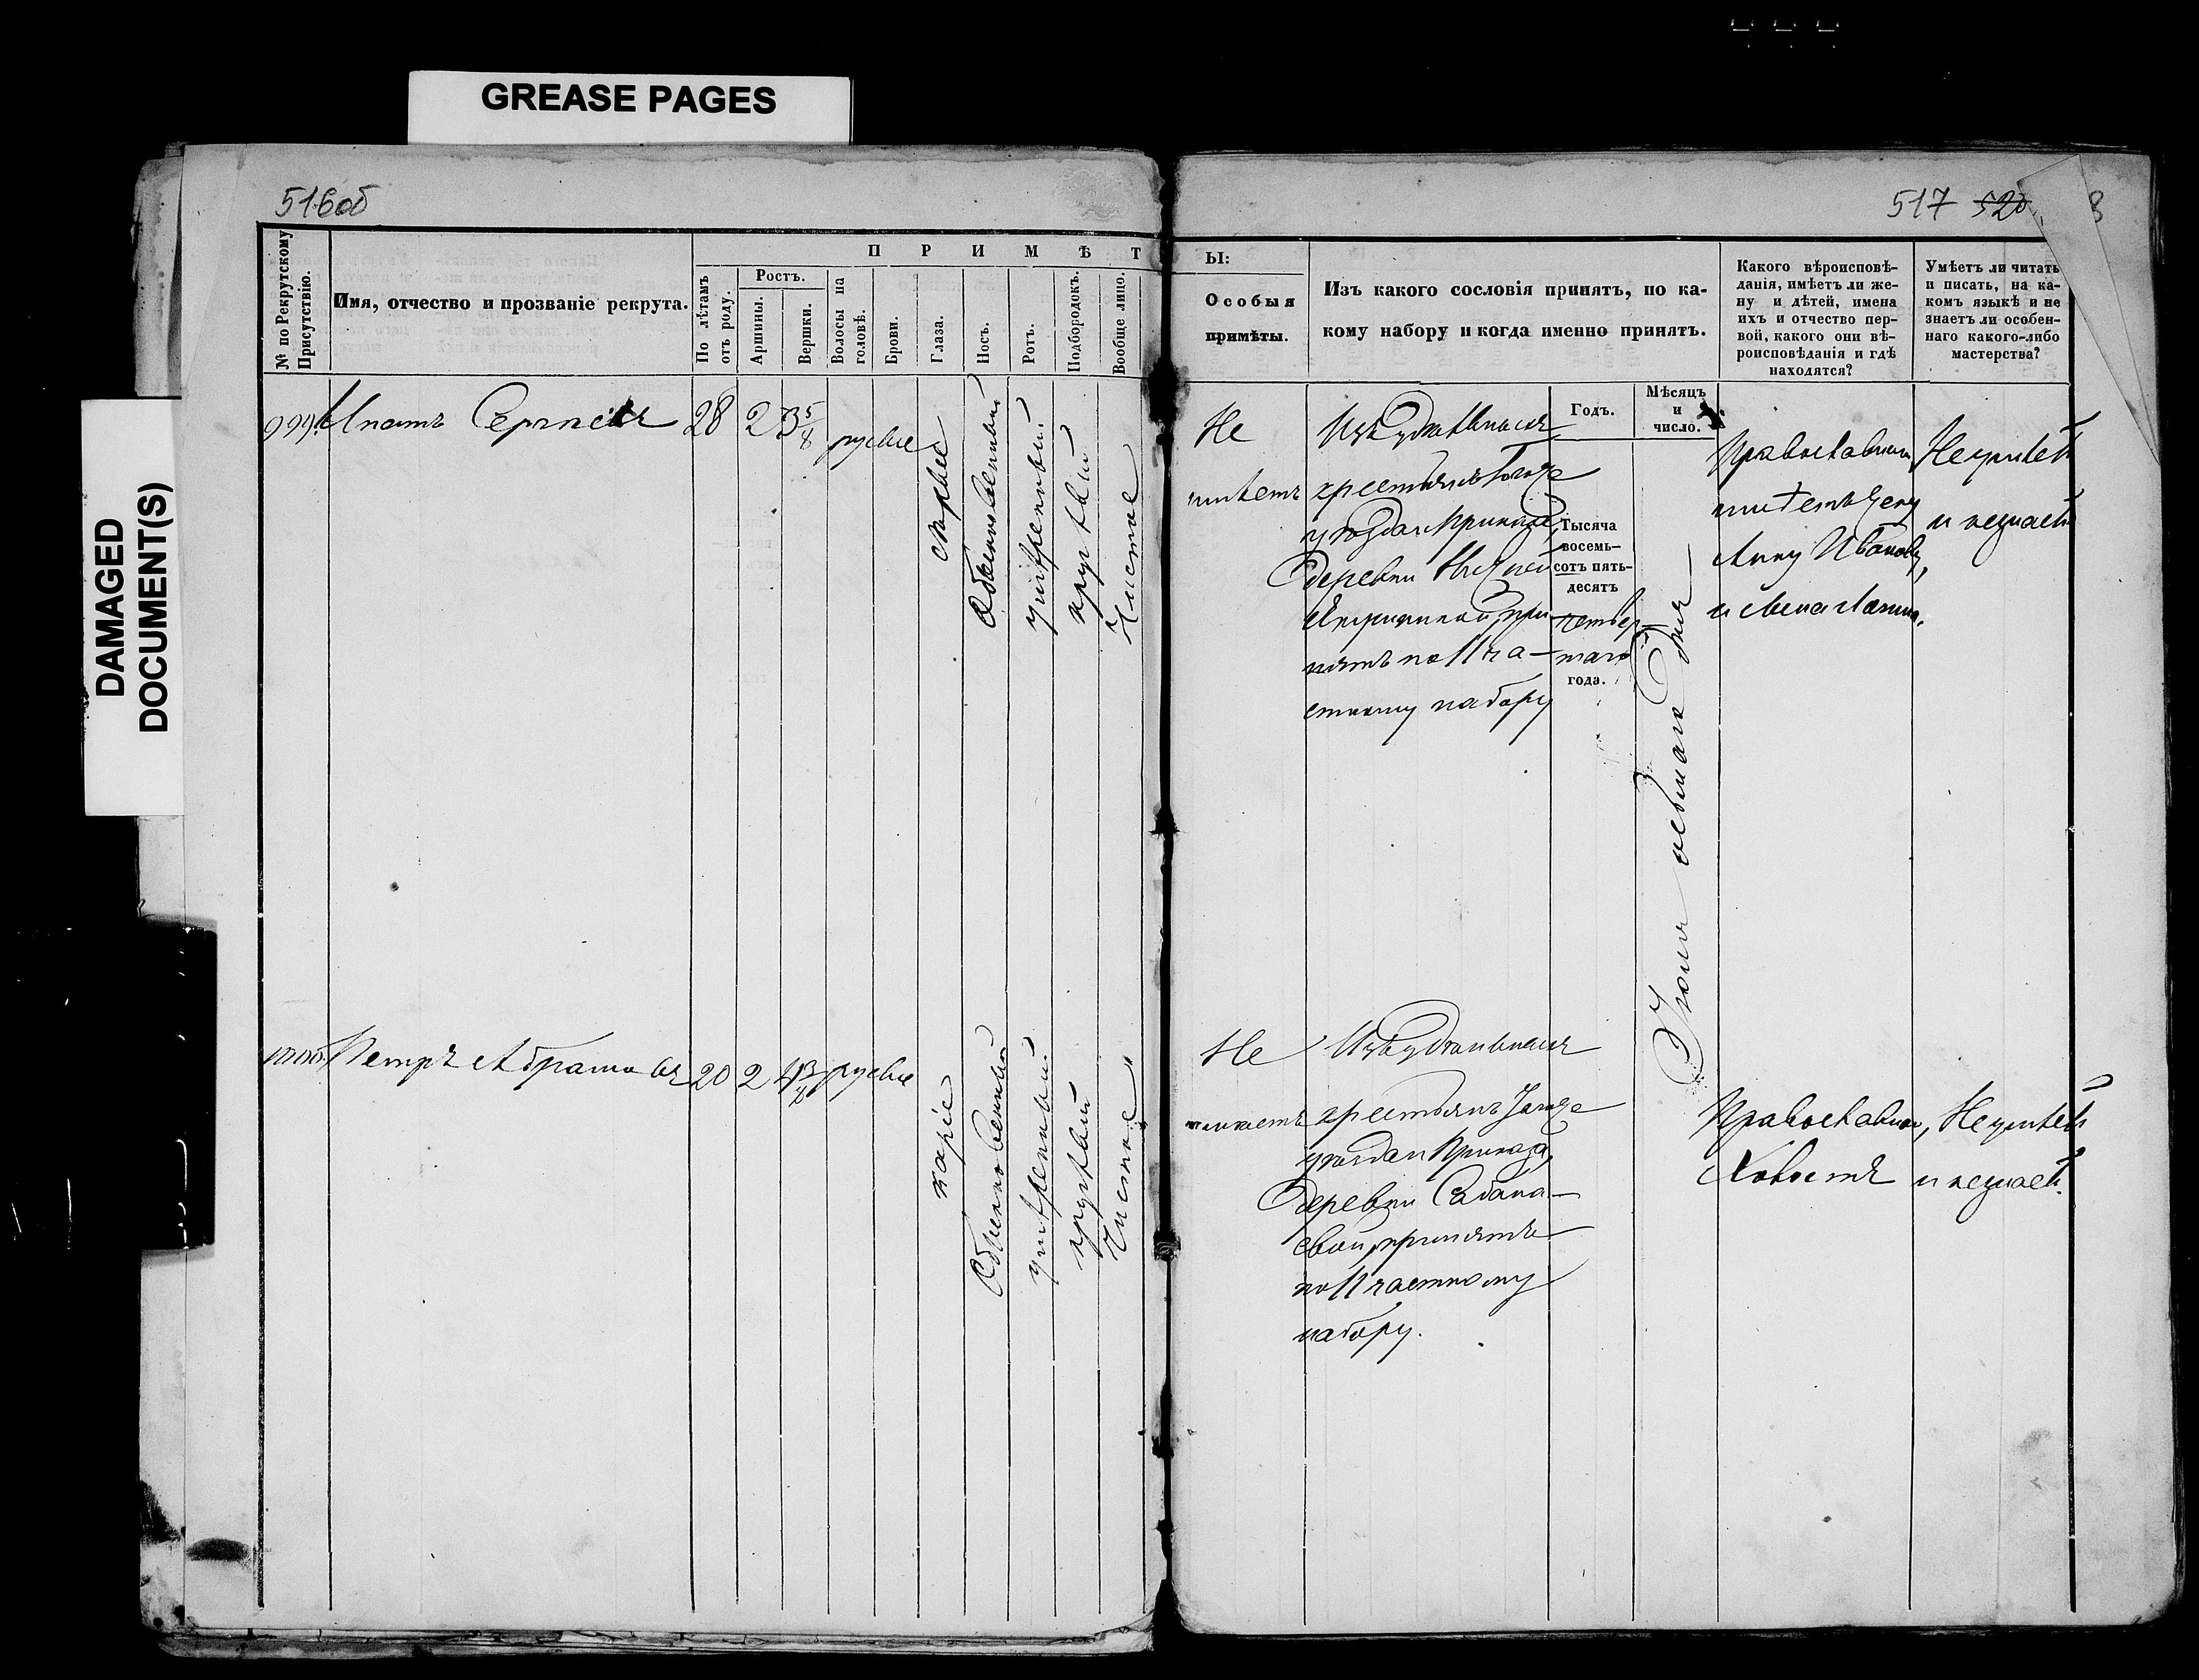 GREASE PAGES
DAMAGED
DOCUMENT(S)
516об
№ по Рекрутскому
Присутствію.
Имя, отчество и прозваніе рекрута.
ПРИМѢТ
По лѣтамъ
отъ роду.
Ростъ.
Аршины.
Вершки.
Волосы на
головѣ.
Брови.
Глаза.
Носъ.
Ротъ.
Подбородокъ.
Вообще лицо.
999.
Ипатъ Сергѣевъ
28
2
3 5/8
русые
сѣрые
Обыкновенный
умѣренный
круглый
Чистое
1000.
Петръ Абрамовъ
20
2
4
русые
каріе
Обыкновенный
умѣренный
круглый
Чистое
517 520
Ы:
Особыя
примѣты.
Изъ какого сословія принятъ, по ка-
кому набору и когда именно принятъ.
Годъ.
Мѣсяцъ
и
число.
Какого вѣроисповѣ-
данія, имѣетъ ли же-
ну и дѣтей, имена
ихъ и отчество пер-
вой, какого они вѣ-
роисповѣданія и гдѣ
находятся?
Умѣетъ ли читать
и писать, на ка-
комъ языкѣ и не
знаетъ ли особен-
наго какого-либо
мастерства?
Не
имѣетъ
Изъ удѣльныхъ
крестьянъ
удѣла Приказа,
деревни
при-
нятъ по 11 ча-
стному набору
Тысяча
восемь-
сотъ пять-
десятъ
четвер-
таго
года.
Іюля осьмаго дня
Православный
имѣетъ жену
Анну Иванову,
и сына
Не умѣетъ
и не знаетъ
Не
имѣетъ
Изъ удѣльныхъ
крестьянъ
Приказа,
деревни
принятъ
по 11 частному
набору.
Православный,
Холостъ
Не умѣетъ
и не знаетъ.